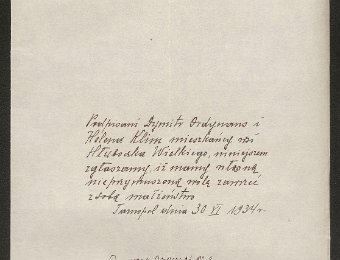 Podpisani Dymitr Ordynans i
Helena Klim mieszkańcy wsi
Hłuboczka Wielkiego, niniejszem
zgłaszamy, iż mamy własną
nieprzymuszoną wolę zawrzeć
z sobą małżeństwo
Tarnopol dnia 30 VI 1934 r.